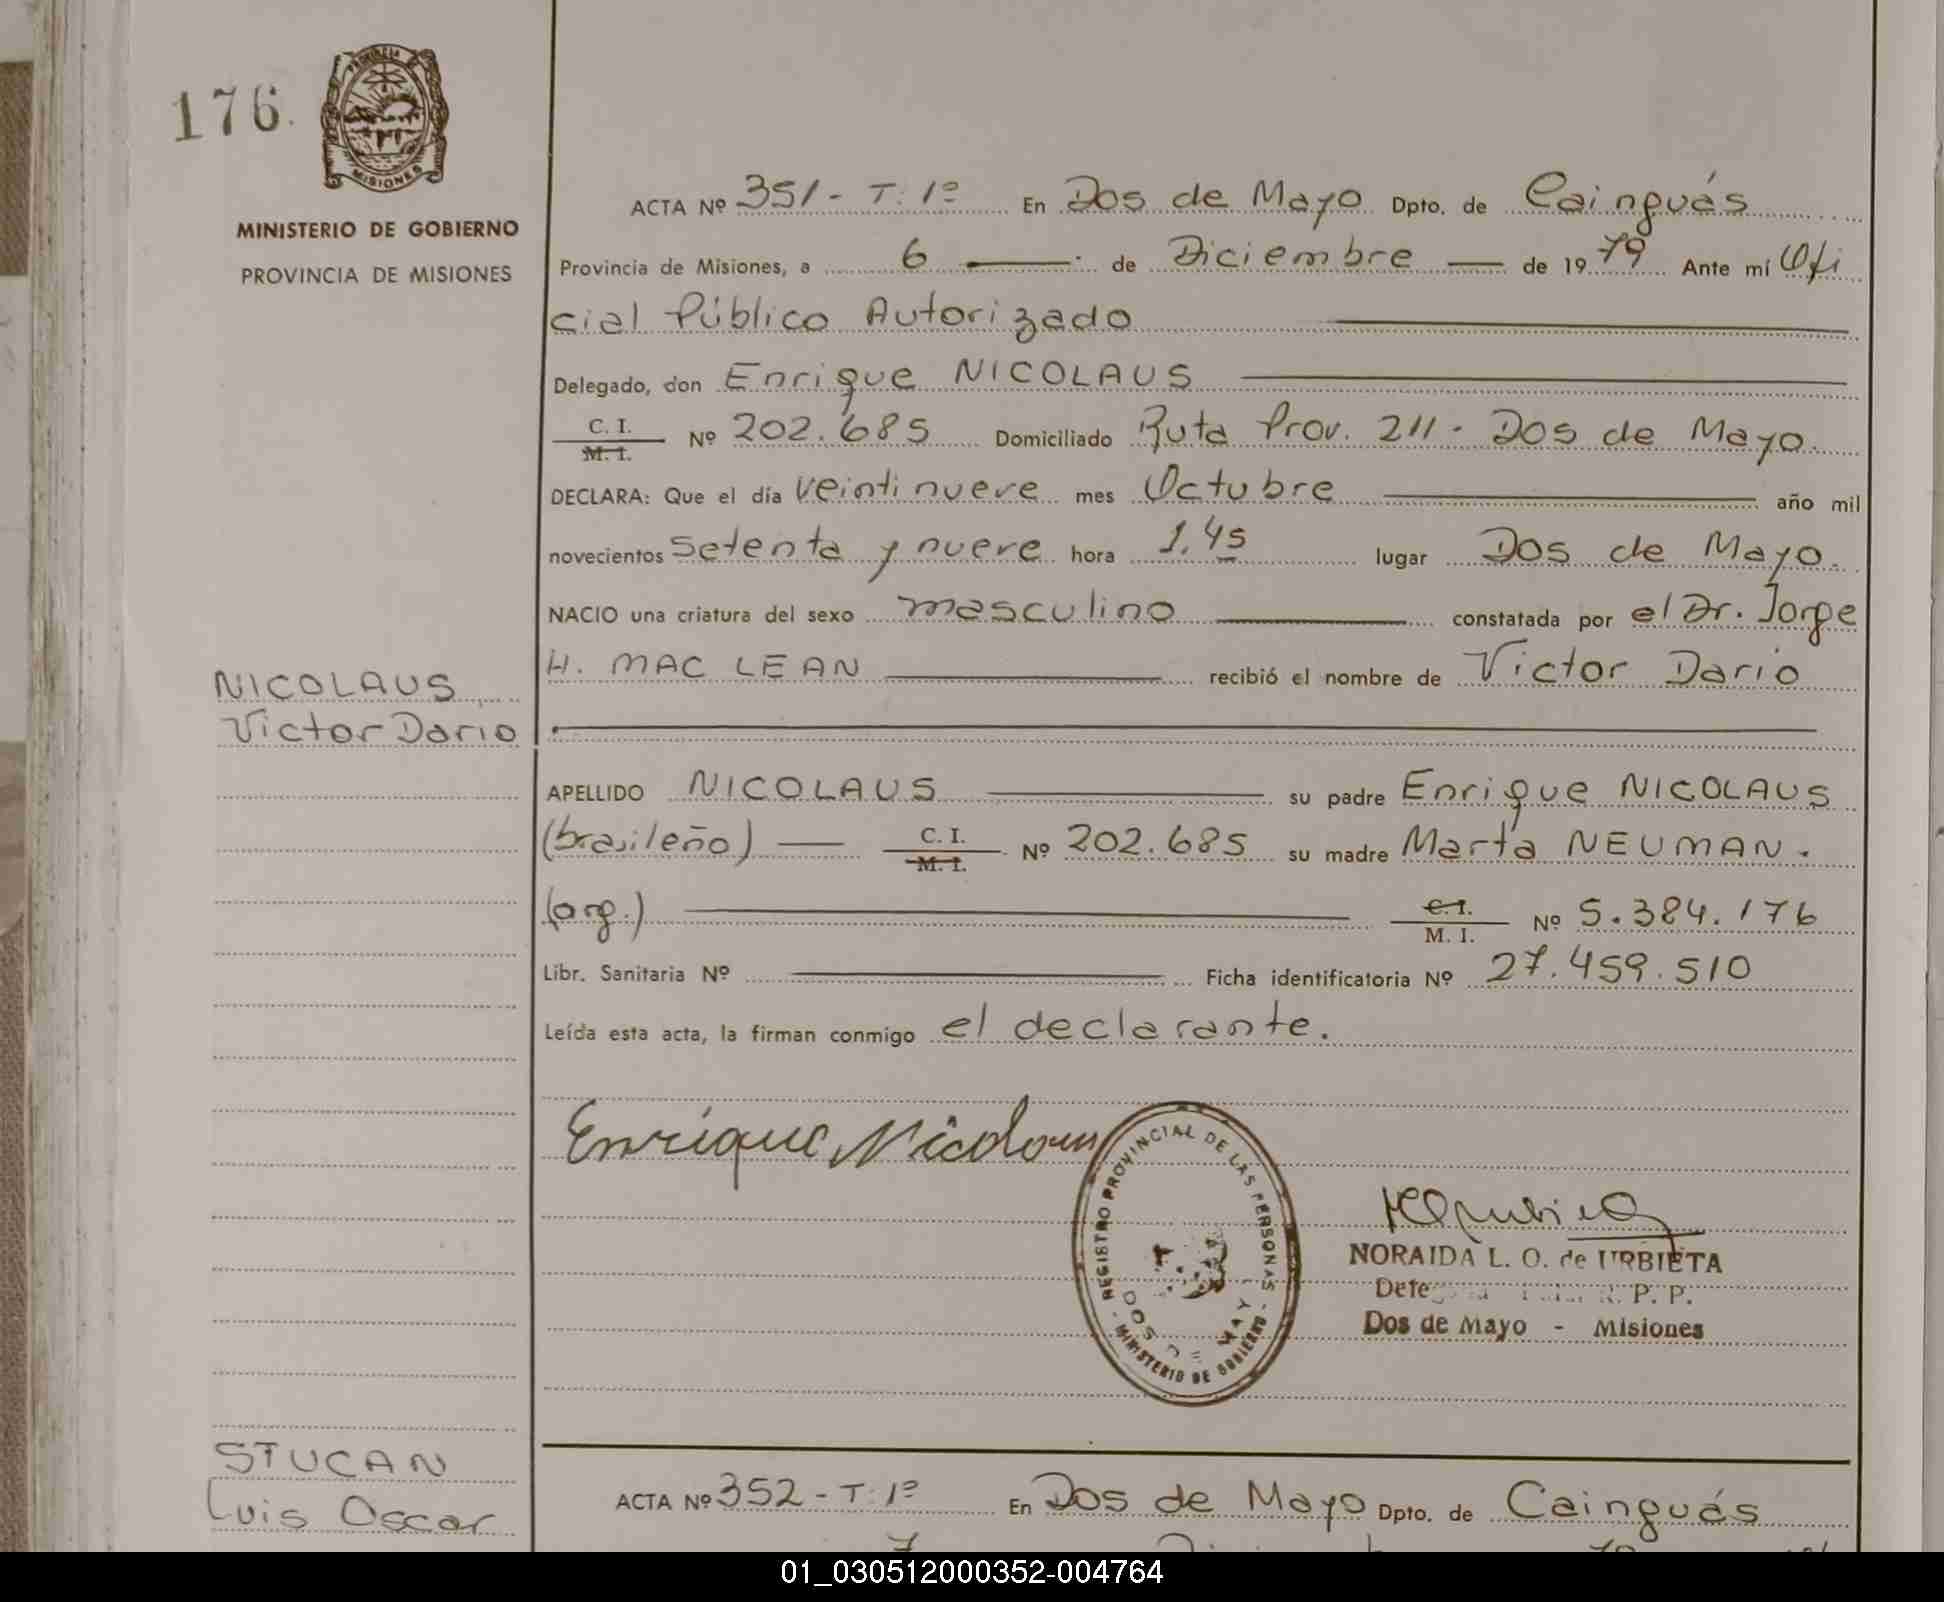 176.
PROVINCIA DE
MISIONES
MINISTERIO DE GOBIERNO
PROVINCIA DE MISIONES
ACTA Nº 351 - T: 1º En Dos de Mayo Dpto. de Cainguás
Provincia de Misiones, a 6 de Diciembre de 1979 Ante mí Ofi
cial Público Autorizado
Delegado, don Enrique NICOLAUS
C. I.
M. I. Nº 202.685 Domiciliado Ruta Prov. 211 - Dos de Mayo.
DECLARA: Que el día veintinueve mes Octubre año mil
novecientos setenta y nueve hora 1.45 lugar Dos de Mayo.
NACIO una criatura del sexo masculino constatada por el Dr. Jorge
H. MAC LEAN recibió el nombre de Victor Dario
NICOLAUS
Victor Dario
APELLIDO NICOLAUS su padre Enrique NICOLAUS
(brasileño) C. I.
M. I. Nº 202.685 su madre Marta NEUMAN.
(arg.) C. I.
M. I. Nº 5.384.176
Libr. Sanitaria Nº Ficha identificatoria Nº 27.459.510
Leída esta acta, la firman conmigo el declarante.
Enrique Nicolaus
REGISTRO PROVINCIAL DE LAS PERSONAS
DOS DE MAYO
- MINISTERIO DE GOBIERNO -
NORAIDA L. O. de URBIETA
R. P. P.
Dos de Mayo - Misiones
STUCAN
Luis Oscar
ACTA Nº 352 - T: 1º En Dos de Mayo Dpto. de Cainguás
01_030512000352-004764